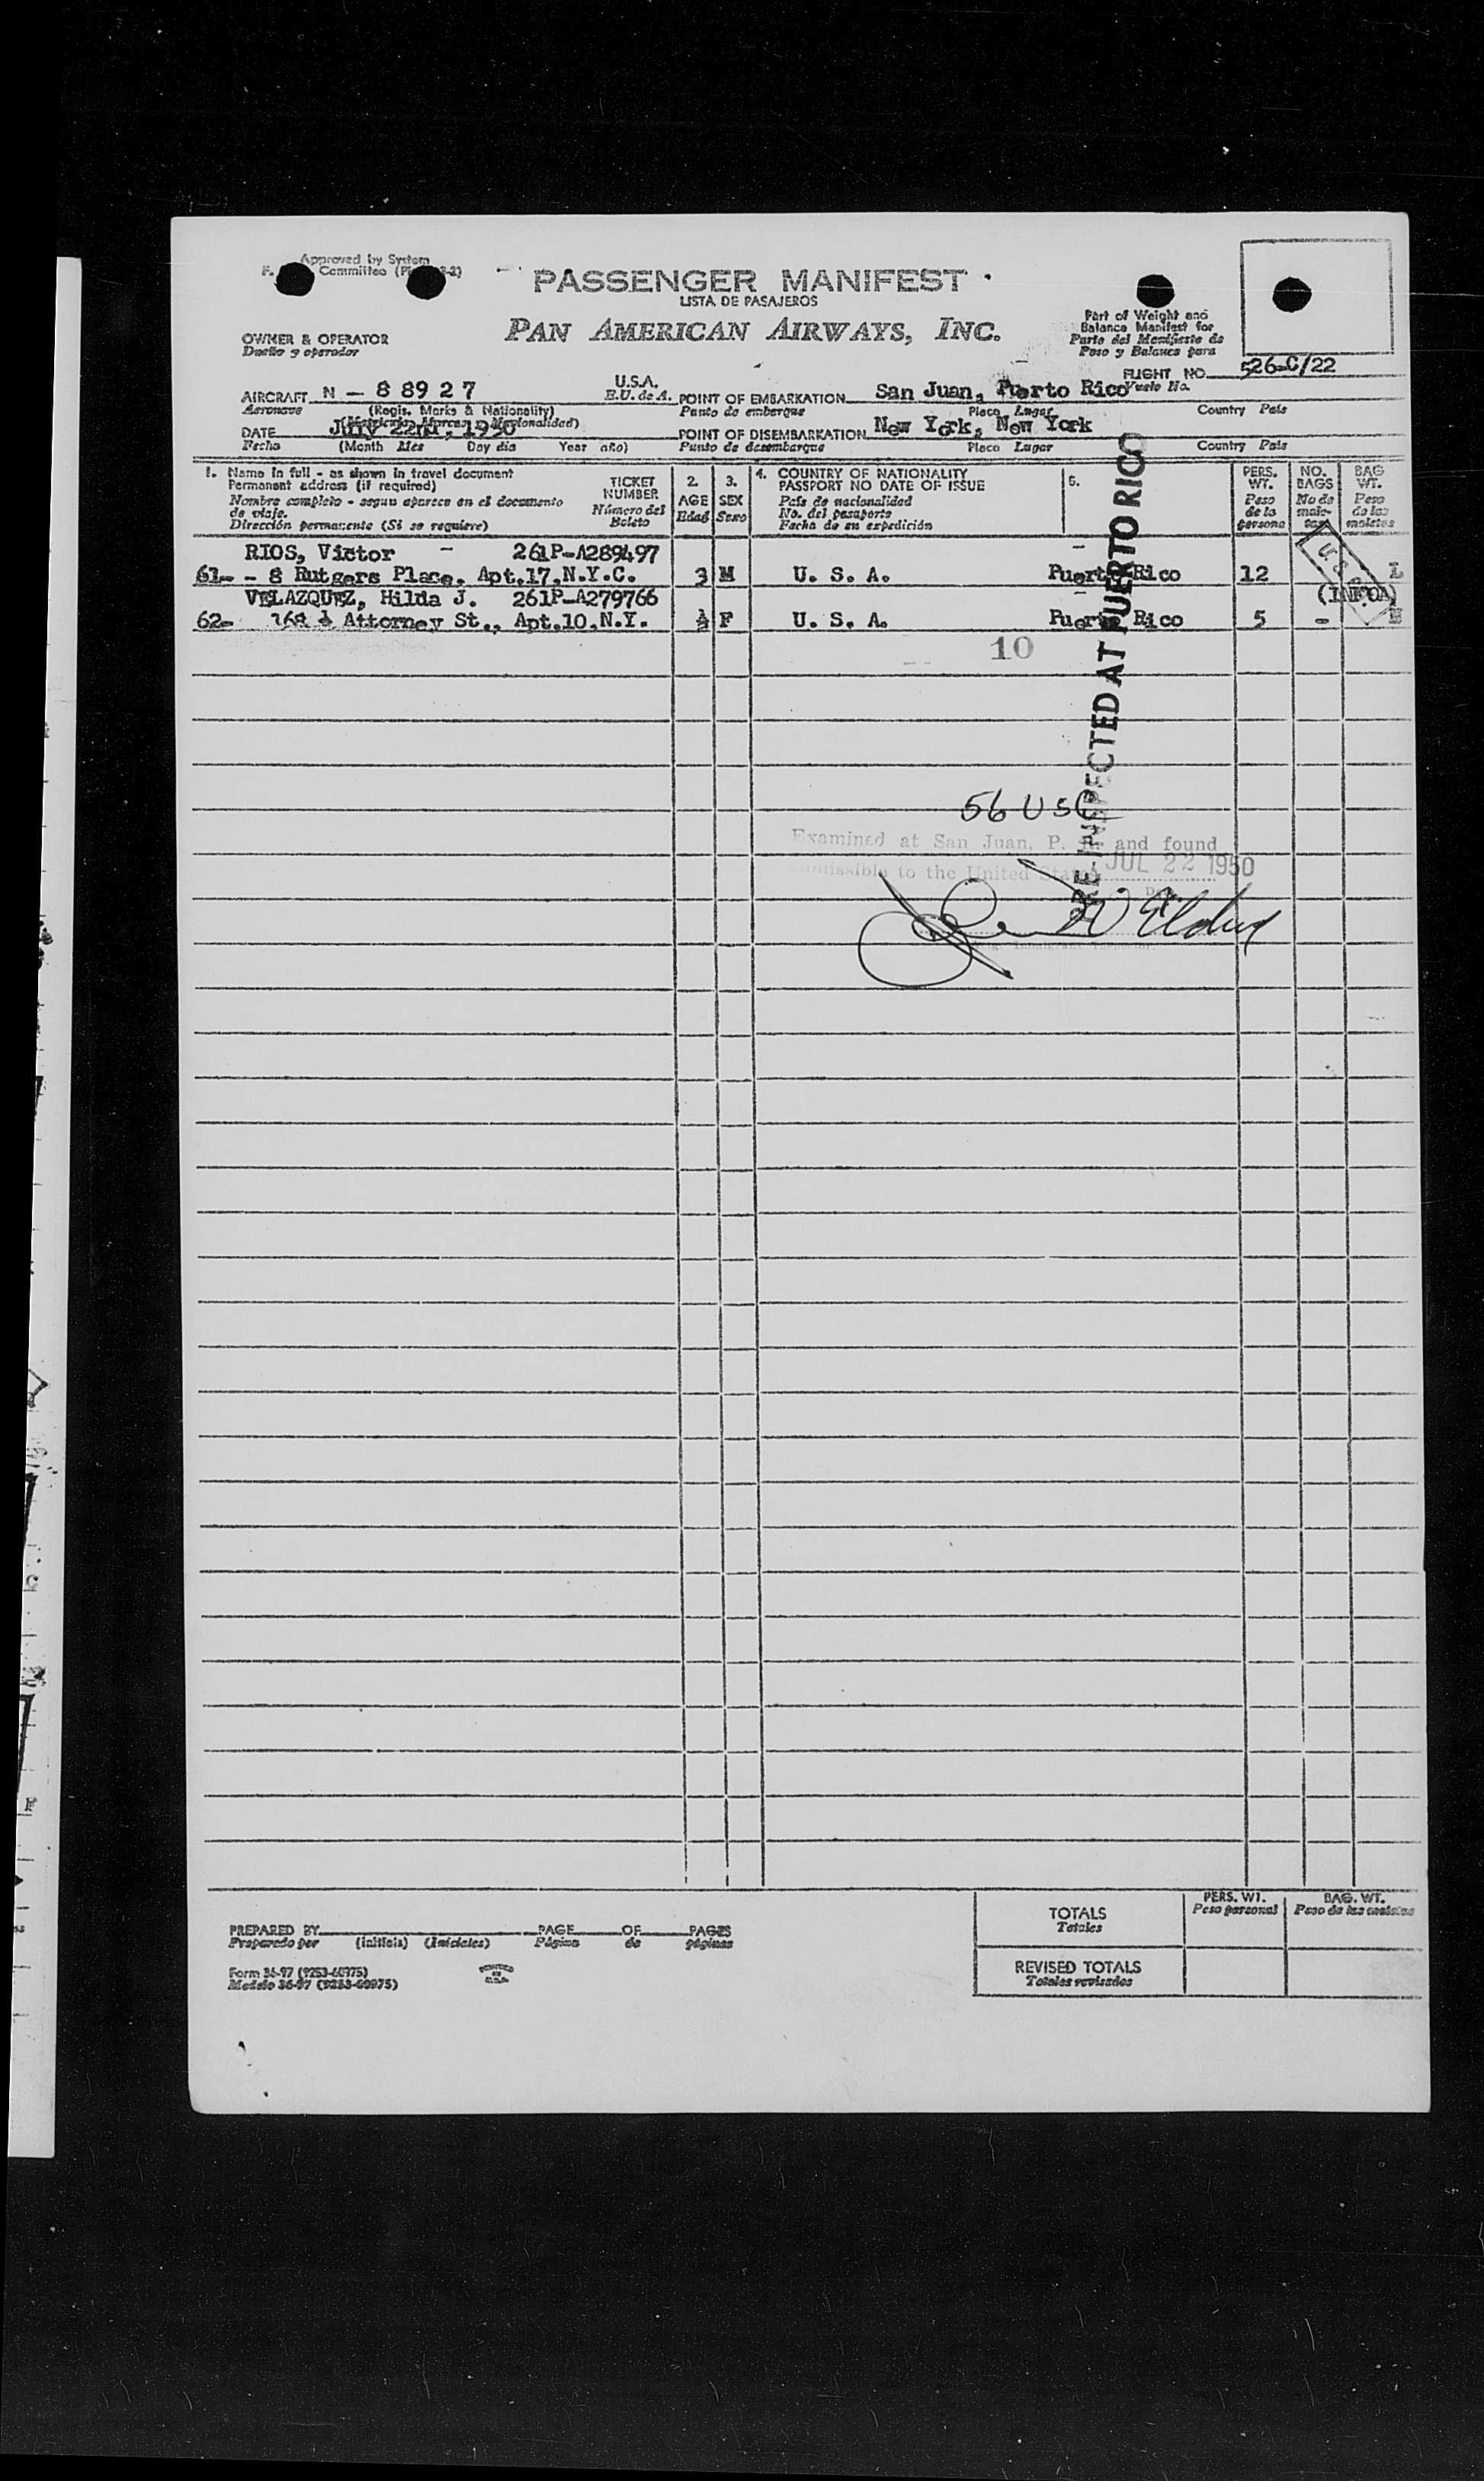 Approved by System
F. Committee
PASSENGER MANIFEST
LISTA DE PASAJEROS
PAN AMERICAN AIRWAYS, INC.
Part of Weight and
Balance Manifest for
Parte del Manifiesto de
Peso y Balance para
OWNER & OPERATOR
Dueño y operador
FLIGHT NO. 526-C/22
Vuelo No.
AIRCRAFT N - 8 8 9 2 7 U.S.A. POINT OF EMBARKATION San Juan, Puerto Rico
Aeronave (Regis. Marks & Nationality) E.U. de A. Punto de embarque Place Lugar Country País
(Matrícula, Marcas y Nacionalidad)
DATE July 22nd, 1950 POINT OF DISEMBARKATION New York, New York
Fecha (Month Mes Day día Year año) Punto de desembarque Place Lugar Country País
1. Name in full - as shown in travel document
Permanent address (if required)
Nombre completo - segun aparece en el documento
de viaje.
Dirección permanente (Si se requiere)
TICKET
NUMBER
Número del
Boleto
2.
AGE
Edad
3.
SEX
Sexo
4. COUNTRY OF NATIONALITY
PASSPORT NO DATE OF ISSUE
País de nacionalidad
No. del pasaporte
Fecha de su expedición
5.
PERS.
WT.
Peso
de la
persona
NO.
BAGS
No de
male-
tas
BAG
WT.
Peso
de las
maletas
RIOS, Victor - 261P-A289497 -
61- - 8 Rutgers Place, Apt.17,N.Y.C. 3 M U. S. A. Puerto Rico 12 L
VELAZQUEZ, Hilda J. 261P-A279766 - (INFOA)
62- 168 ½ Attorney St., Apt.10,N.Y. ½ F U. S. A. Puerto Rico 5 -
10
PRE-INSPECTED AT PUERTO RICO
56 USC
Examined at San Juan, P. and found
admissible to the United States JUL 22 1950
PREPARED BY PAGE OF PAGES
Preparado por (initials) (Iniciales) Página de páginas
Form 36-97 (9253-60975)
Modelo 36-97 (9253-60975)
PERS. WT.
Peso personal
BAG. WT.
Peso de las maletas
TOTALS
Totales
REVISED TOTALS
Totales revisados